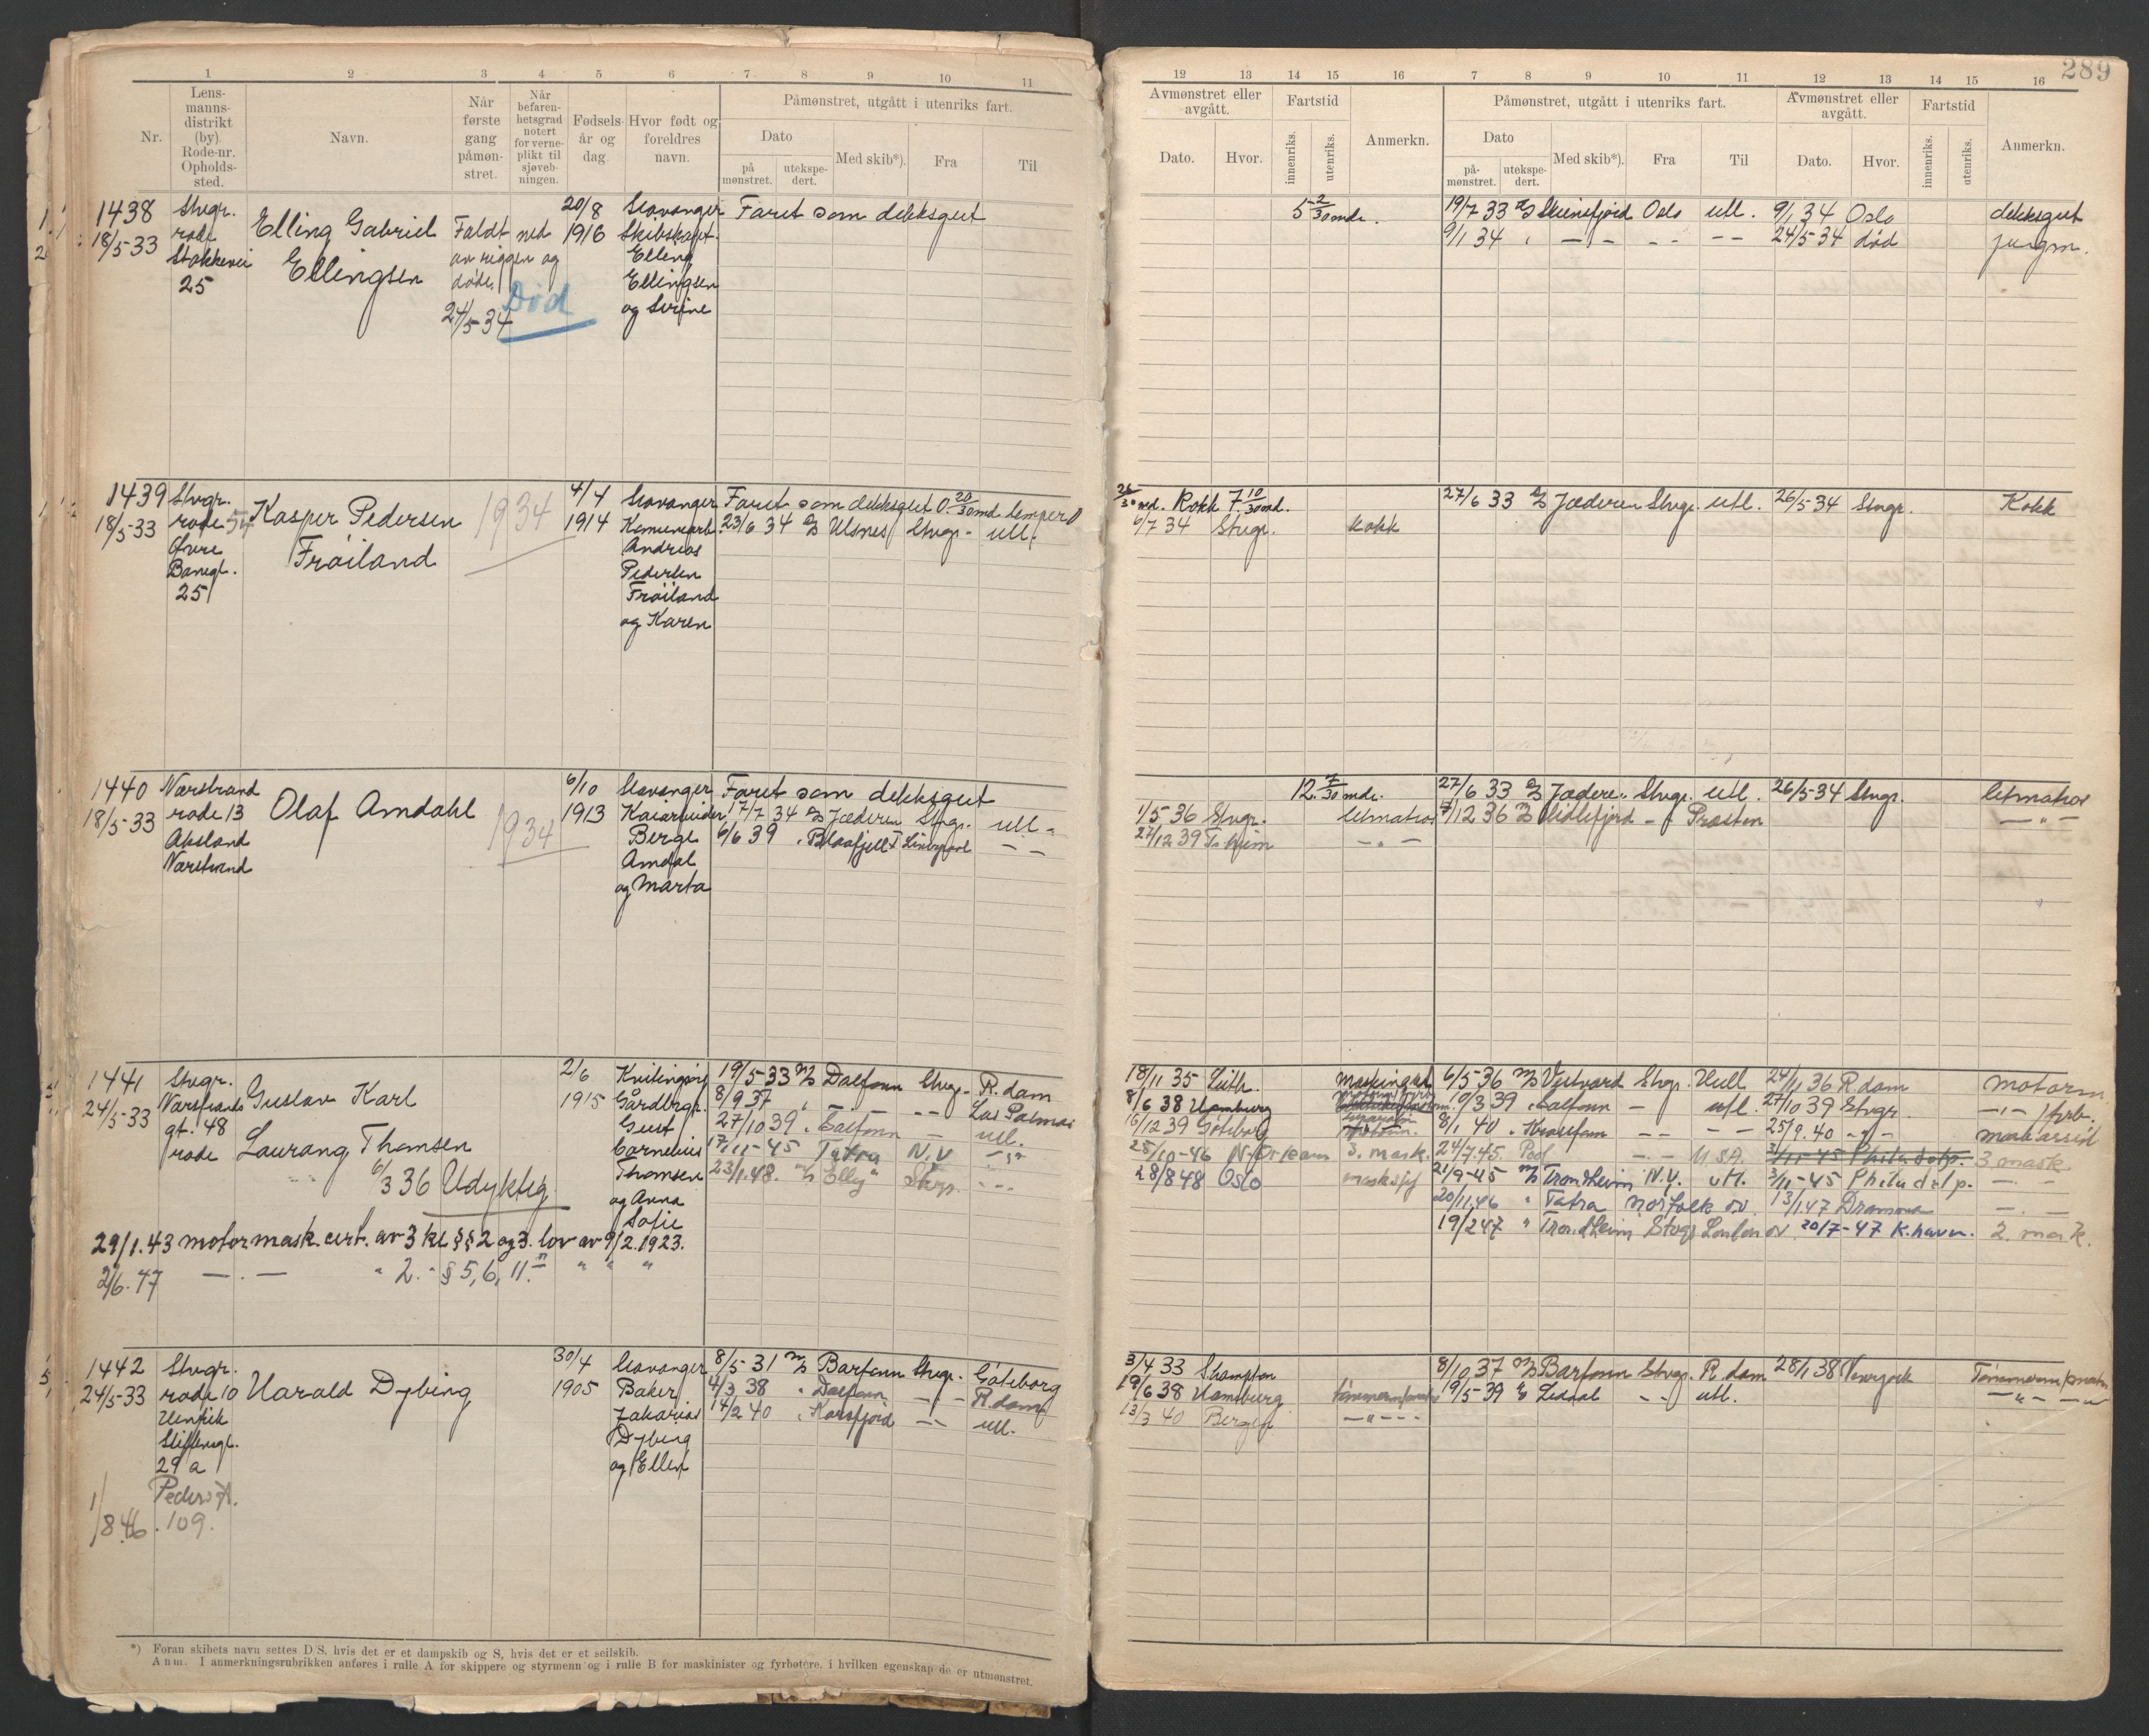 289
1 2 3 4 5 6 7 8 9 10 11
Nr.
Lens-
manns-
distrikt
(by).
Rode-nr.
Opholds-
sted.
Navn.
Når
første
gang
påmøn-
stret.
Når
befaren-
hetsgrad
notert
for verne-
plikt til
sjøveb-
ningen.
Fødsels-
år og
dag.
Hvor født og
foreldres
navn.
Påmønstret, utgått i utenriks fart.
Dato
på
mønstret.
utekspe-
dert.
Med skib*).
Fra
Til
12 13 14 15 16 7 8 9 10 11 12 13 14 15 16
Avmønstret eller
avgått.
Dato.
Hvor.
Fartstid
innenriks.
utenriks.
Anmerkn.
Påmønstret, utgått i utenriks fart.
Dato
på-
mønstret.
utekspe-
dert.
Med skib*).
Fra
Til
Avmønstret eller
avgått.
Dato.
Hvor.
Fartstid
innenriks.
utenriks.
Anmerkn.
1438
18/5-33
Stvgr.
rode
Stokkevei
25
Elling Gabriel
Ellingsen
Faldt ned
av riggen og
døde
24/5-34
Død
20/8
1916
Stavanger
Skibskapt.
Elling
Ellingsen
og Sirine
Faret som dekksgut
5 2/30 mdr.
19/7 33 Skiensfjord Oslo utl. 9/1 34 Oslo dekksgut
9/1 34 " — - - - -- 24/5-34 død jungm.
1439
18/5-33
Stvgr.
rode 54
Øvre
Banegt.
25
Kasper Pedersen
Frøiland
1934
4/4
1914
Stavanger
Andreas
Pedersen
Frøiland
og Karen
Faret som dekksgut 0. 20/30 md
23/6 34 Ulsnes Stvgr- utl.
26/30 md. Kokk 7 10/30 md.
6/7 34 Stvgr. kokk
27/6 33 Jæderen Stvgr. utl. 26/5-34 Stvgr. Kokk
1440
18/5-33
Nærstrand
rode 13
Aksland
Nærstrand
Olaf Amdahl
1934
6/10
1913
Stavanger
Kaiarbeider
Berge
Amdal
og Marta
Faret som dekksgut
17/7 34 Jæderen Stvgr. utl-
6/6 39 " Blaafjell I — —
12. 7/30 mdr.
1/5 36 Stvgr. letmatros
27/12 39 T.heim - " -
27/6 33 Jæderen Stvgr. utl. 26/5-34 Stvgr. letmatros
7/12 36 Lidlefjord - Præsten — " —
1441
24/5-33
Stvgr.
Nærstrands
gt. 48
rode
Gustav Karl
Laurang Thomsen
6/3 36 Udyktig
29/1.43 motormask.cert. av 3 kl §§ 2 og 3. lov av 9/2.1923.
2/6. 47 — . — " 2. " § 5, 6, 11. " " " "
2/6
1915
Kvitingsøy
Gårdbrgr.
Gust
Cornelius
Thomsen
og Anna
Sofie
19/5-33 M/S Dalfonn Stvgr- R.dam
8/9 37 " — - -- Las Palmas
27/10 39 " Taifonn — utl.
17/11-45 Tatra N.Y — " —
23/1.48. M/S Elly Stvgr. - - -
18/11 35 Leith.
8/6 38 Hamburg
16/12 39 Gøteborg
25/10-46 3. mask.
28/8 48 Oslo
6/5-36 M/S Vestvard Stvgr. Hull 24/11 36 R.dam motorm.
10/3 39 " — utl. 27/10 39 Stvgr. -"- fyrb.
8/1 40 " -- -- 25/9.40 -"- mask assist
24/7.45. -.- U S A. 3/11-45 Philadelp. 3 mask.
21/9-45 M/S Trondheim N.Y. utl. 3/11-45 Philadelp. —.—
20/11.46 " Tatra Norfolk ov. 13/1.47 Drammen —.—
19/2 47 " Trondheim Stvgr London ov 20/7-47 K.havn. 2. mask.
1442
24/5-33
Stvgr.
rode 10
Henrik
Steffensgt.
29 a
Peders gt.
109.
1/8 46.
Harald Dybing
30/4
1905
Stavanger
Baker
Zakarias
Dybing
og Ellen
8/5-31 M/S Barfonn Stvgr. Göteborg
4/3 38 " Dalfonn — " — R.dam
14/2 40 " Korsfjord -- utl.
3/4 33 S.hampton
19/6 38 Hamburg
13/3 40 Bergen —"—
8/10 37 M/S Barfonn Stvgr. R.dam 28/1 38
19/5-39 Lidval -- utl.
*) Foran skibets navn settes D/S, hvis det er et dampskib og S, hvis det er et seilskib.
Anm. I anmerkningsrubrikken anføres i rulle A for skippere og styrmenn og i rulle B for maskinister og fyrbøtere, i hvilken egenskap de er utmønstret.